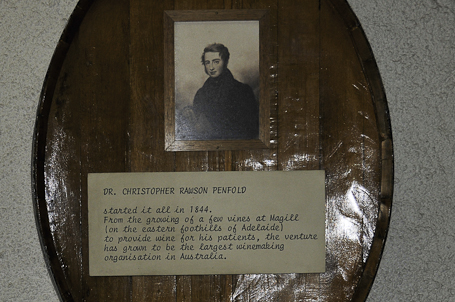 DR. CHRISTOPHER RAWSON PENFOLD
started it all in 1844.
From the growing of a few vines at Magill
(on the eastern foothills of Adelaide)
to provide wine for his patients, the venture
has grown to be the largest winemaking
organisation in Australia.